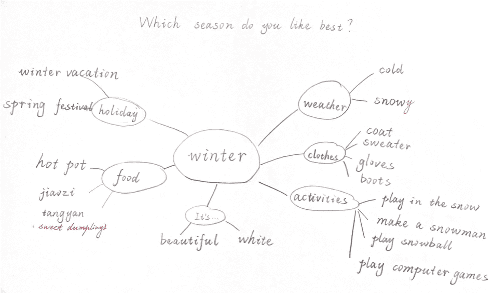 Which season do you like best?
winter vacation
spring festival
holiday
weather
cold
snowy
winter
clothes
coat
sweater
gloves
boots
hot pot
jiaozi
tangyan
sweet dumplings
food
activities
play in the snow
make a snowman
play snowball
play computer games
It's...
beautiful
white